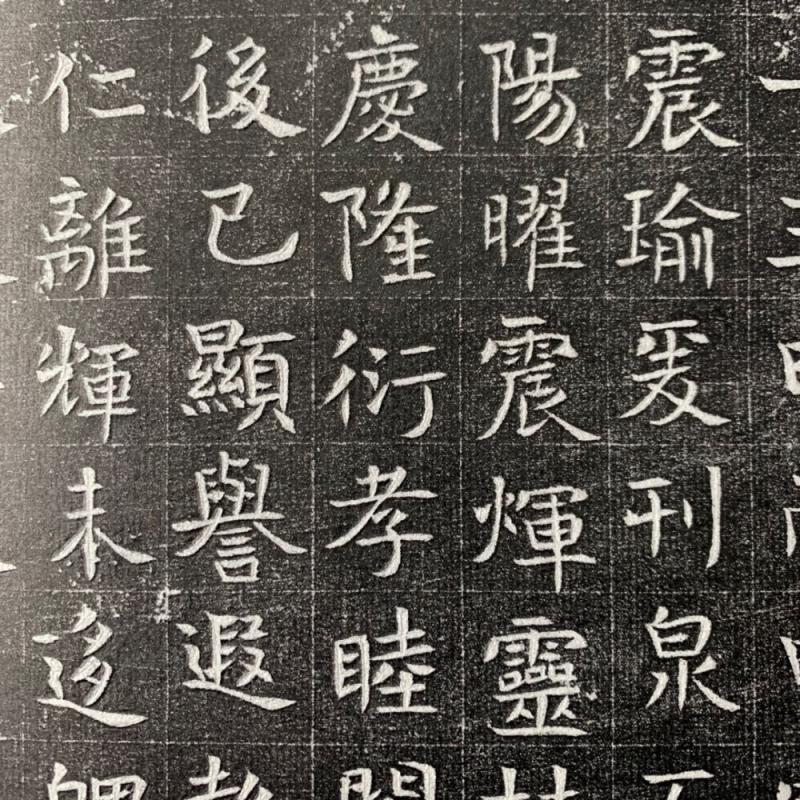 震瑜爰刊泉
陽曜震煇靈
慶隆衍孝睦
後已顯譽遐
仁離輝未迻